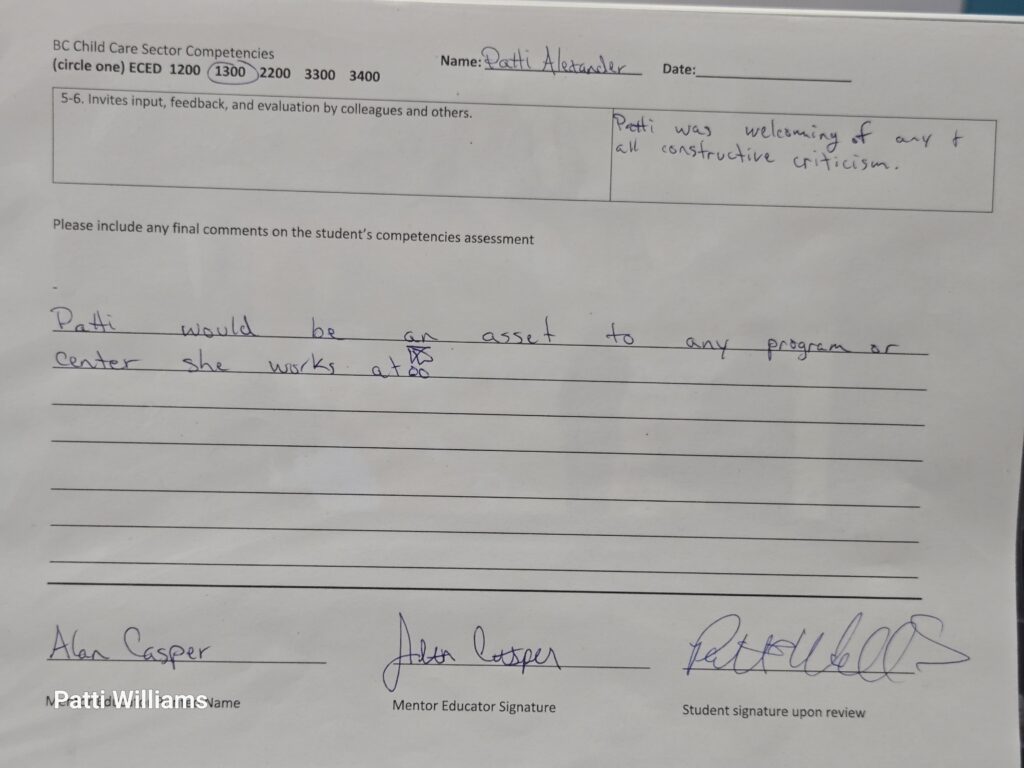 BC Child Care Sector Competencies
(circle one) ECED 1200 1300 2200 3300 3400
Name: Patti Alexander Date:
5-6. Invites input, feedback, and evaluation by colleagues and others.
Patti was welcoming of any +
all constructive criticism.
Please include any final comments on the student's competencies assessment
Patti would be an asset to any program or
center she works at
Alan Casper
Alan Casper
Patti Williams
Name
Mentor Educator Signature
Student signature upon review